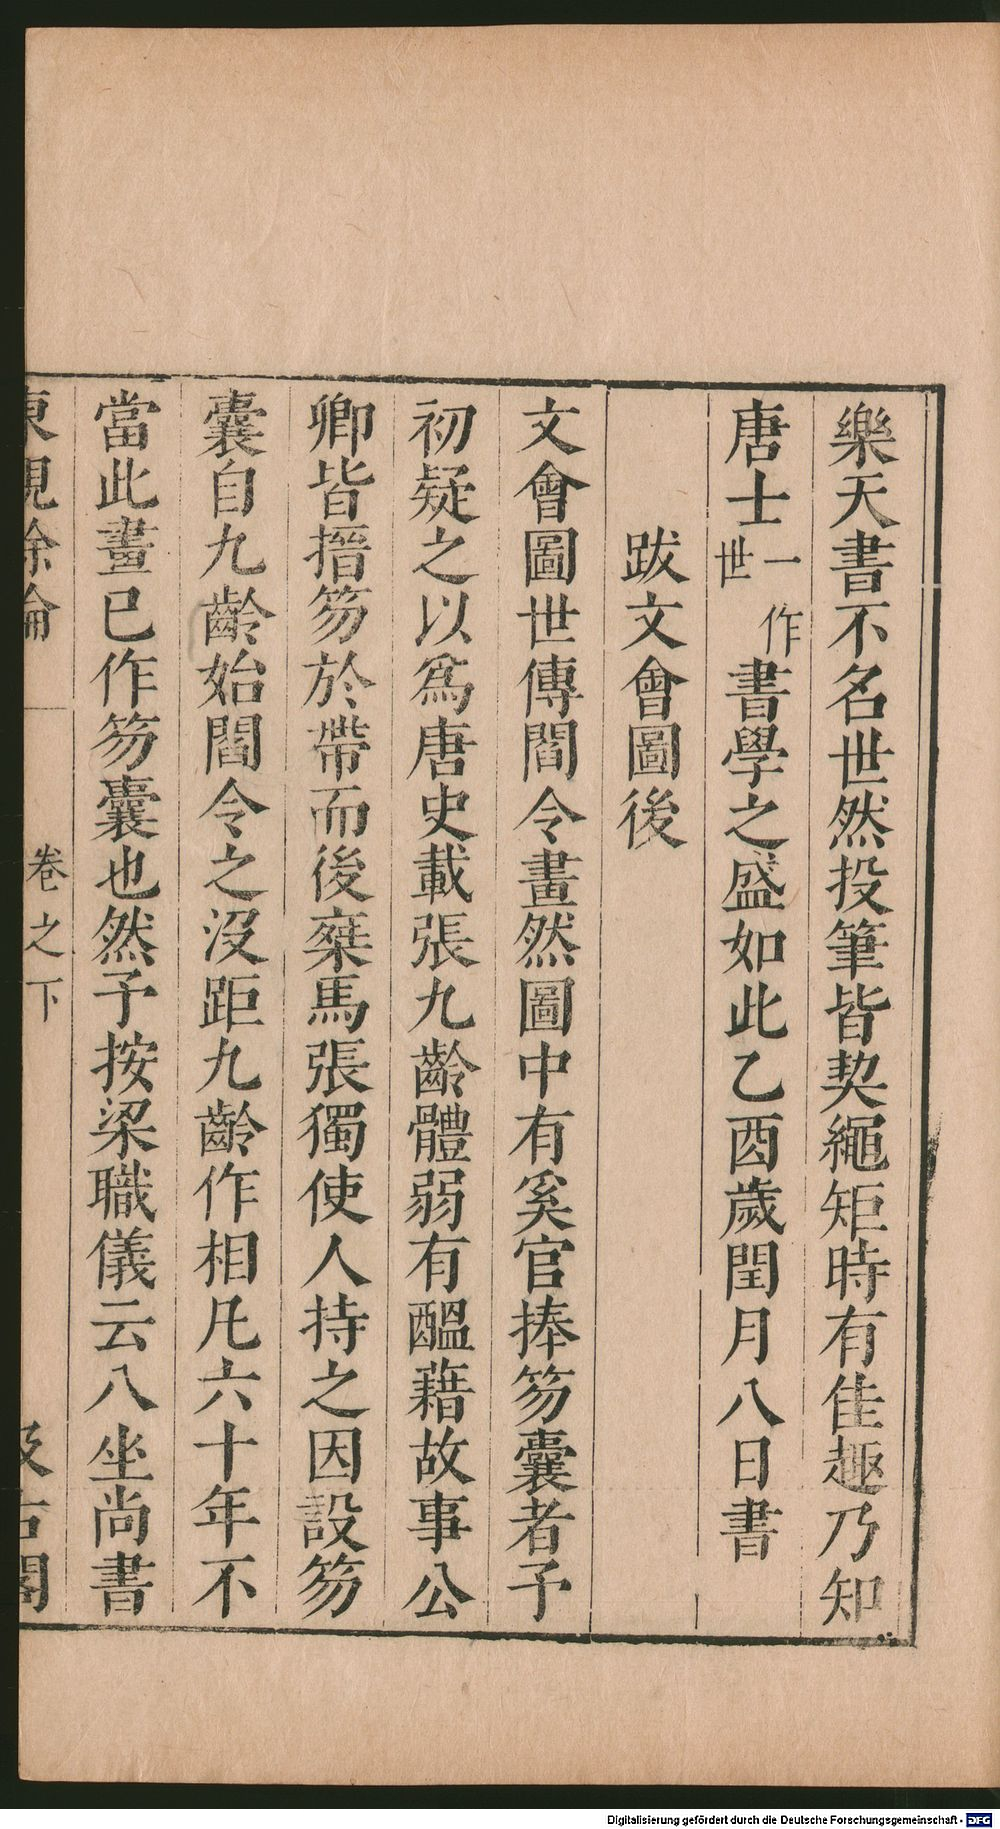 樂天書不名世然投筆皆契繩矩時有佳趣乃知
唐士一作世書學之盛如此乙酉歲閏月八日書
跋文會圖後
文會圖世傳閻令畫然圖中有奚官捧笏囊者予
初疑之以爲唐史載張九齡體弱有醞藉故事公
卿皆搢笏於帶而後椉馬張獨使人持之因設笏
囊自九齡始閻令之沒距九齡作相凡六十年不
當此畫已作笏囊也然予按梁職儀云八坐尚書
東觀餘論 卷之下 汲古閣
Digitalisierung gefördert durch die Deutsche Forschungsgemeinschaft - DFG